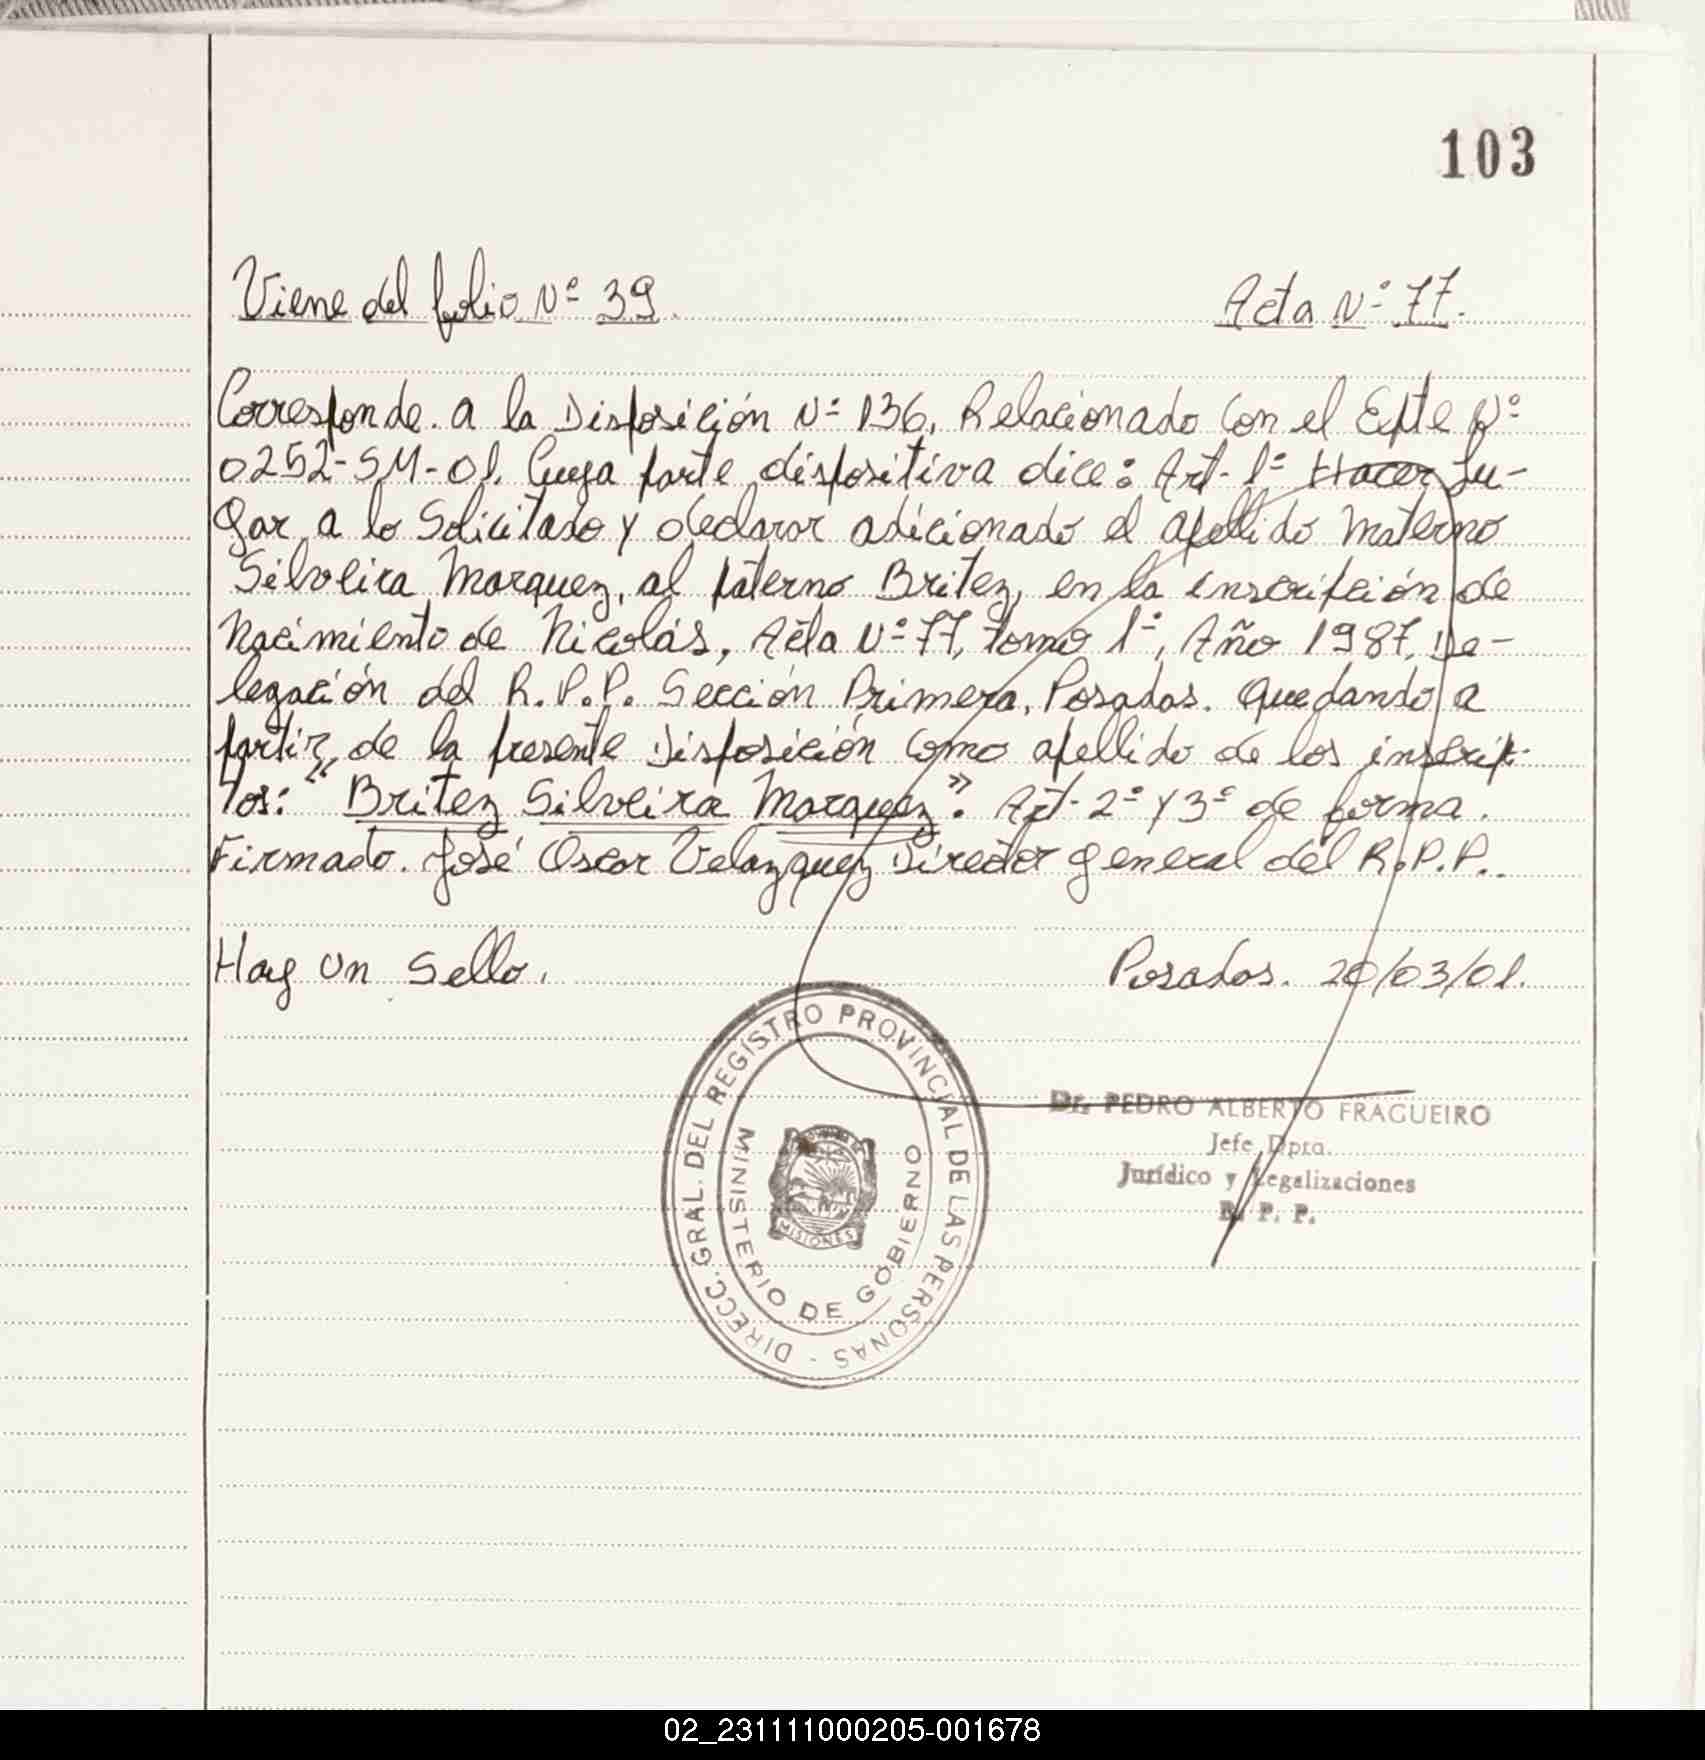 103
Viene del folio Nº 39. Acta Nº 77.
Corresponde. a la Disposición Nº 136, Relacionado con el Expte Nº
0252-SM-01. Cuya parte dispositiva dice: Art- 1º Hacer Lu-
gar a lo Solicitado y declarar adicionado el apellido materno
Silveira Marquez, al paterno Britez, en la inscripción de
Nacimiento de Nicolás, Acta Nº 77, tomo 1º, Año 1987, De-
legación del R.P.P. Sección Primera, Posadas. Quedando a
partir de la presente Disposición como apellido de los inscrip-
tos: "Britez Silveira Marquez". Art- 2º y 3º de forma.
Firmado. José Oscar Velazquez Director general del R.P.P..
Hay un Sello. Posadas. 20/03/01.
DIRECC. GRAL. DEL REGISTRO PROVINCIAL DE LAS PERSONAS -
MINISTERIO DE GOBIERNO
MISIONES
Dr. PEDRO ALBERTO FRAGUEIRO
Jefe Dpto.
Jurídico y Legalizaciones
R. P. P.
02_231111000205-001678